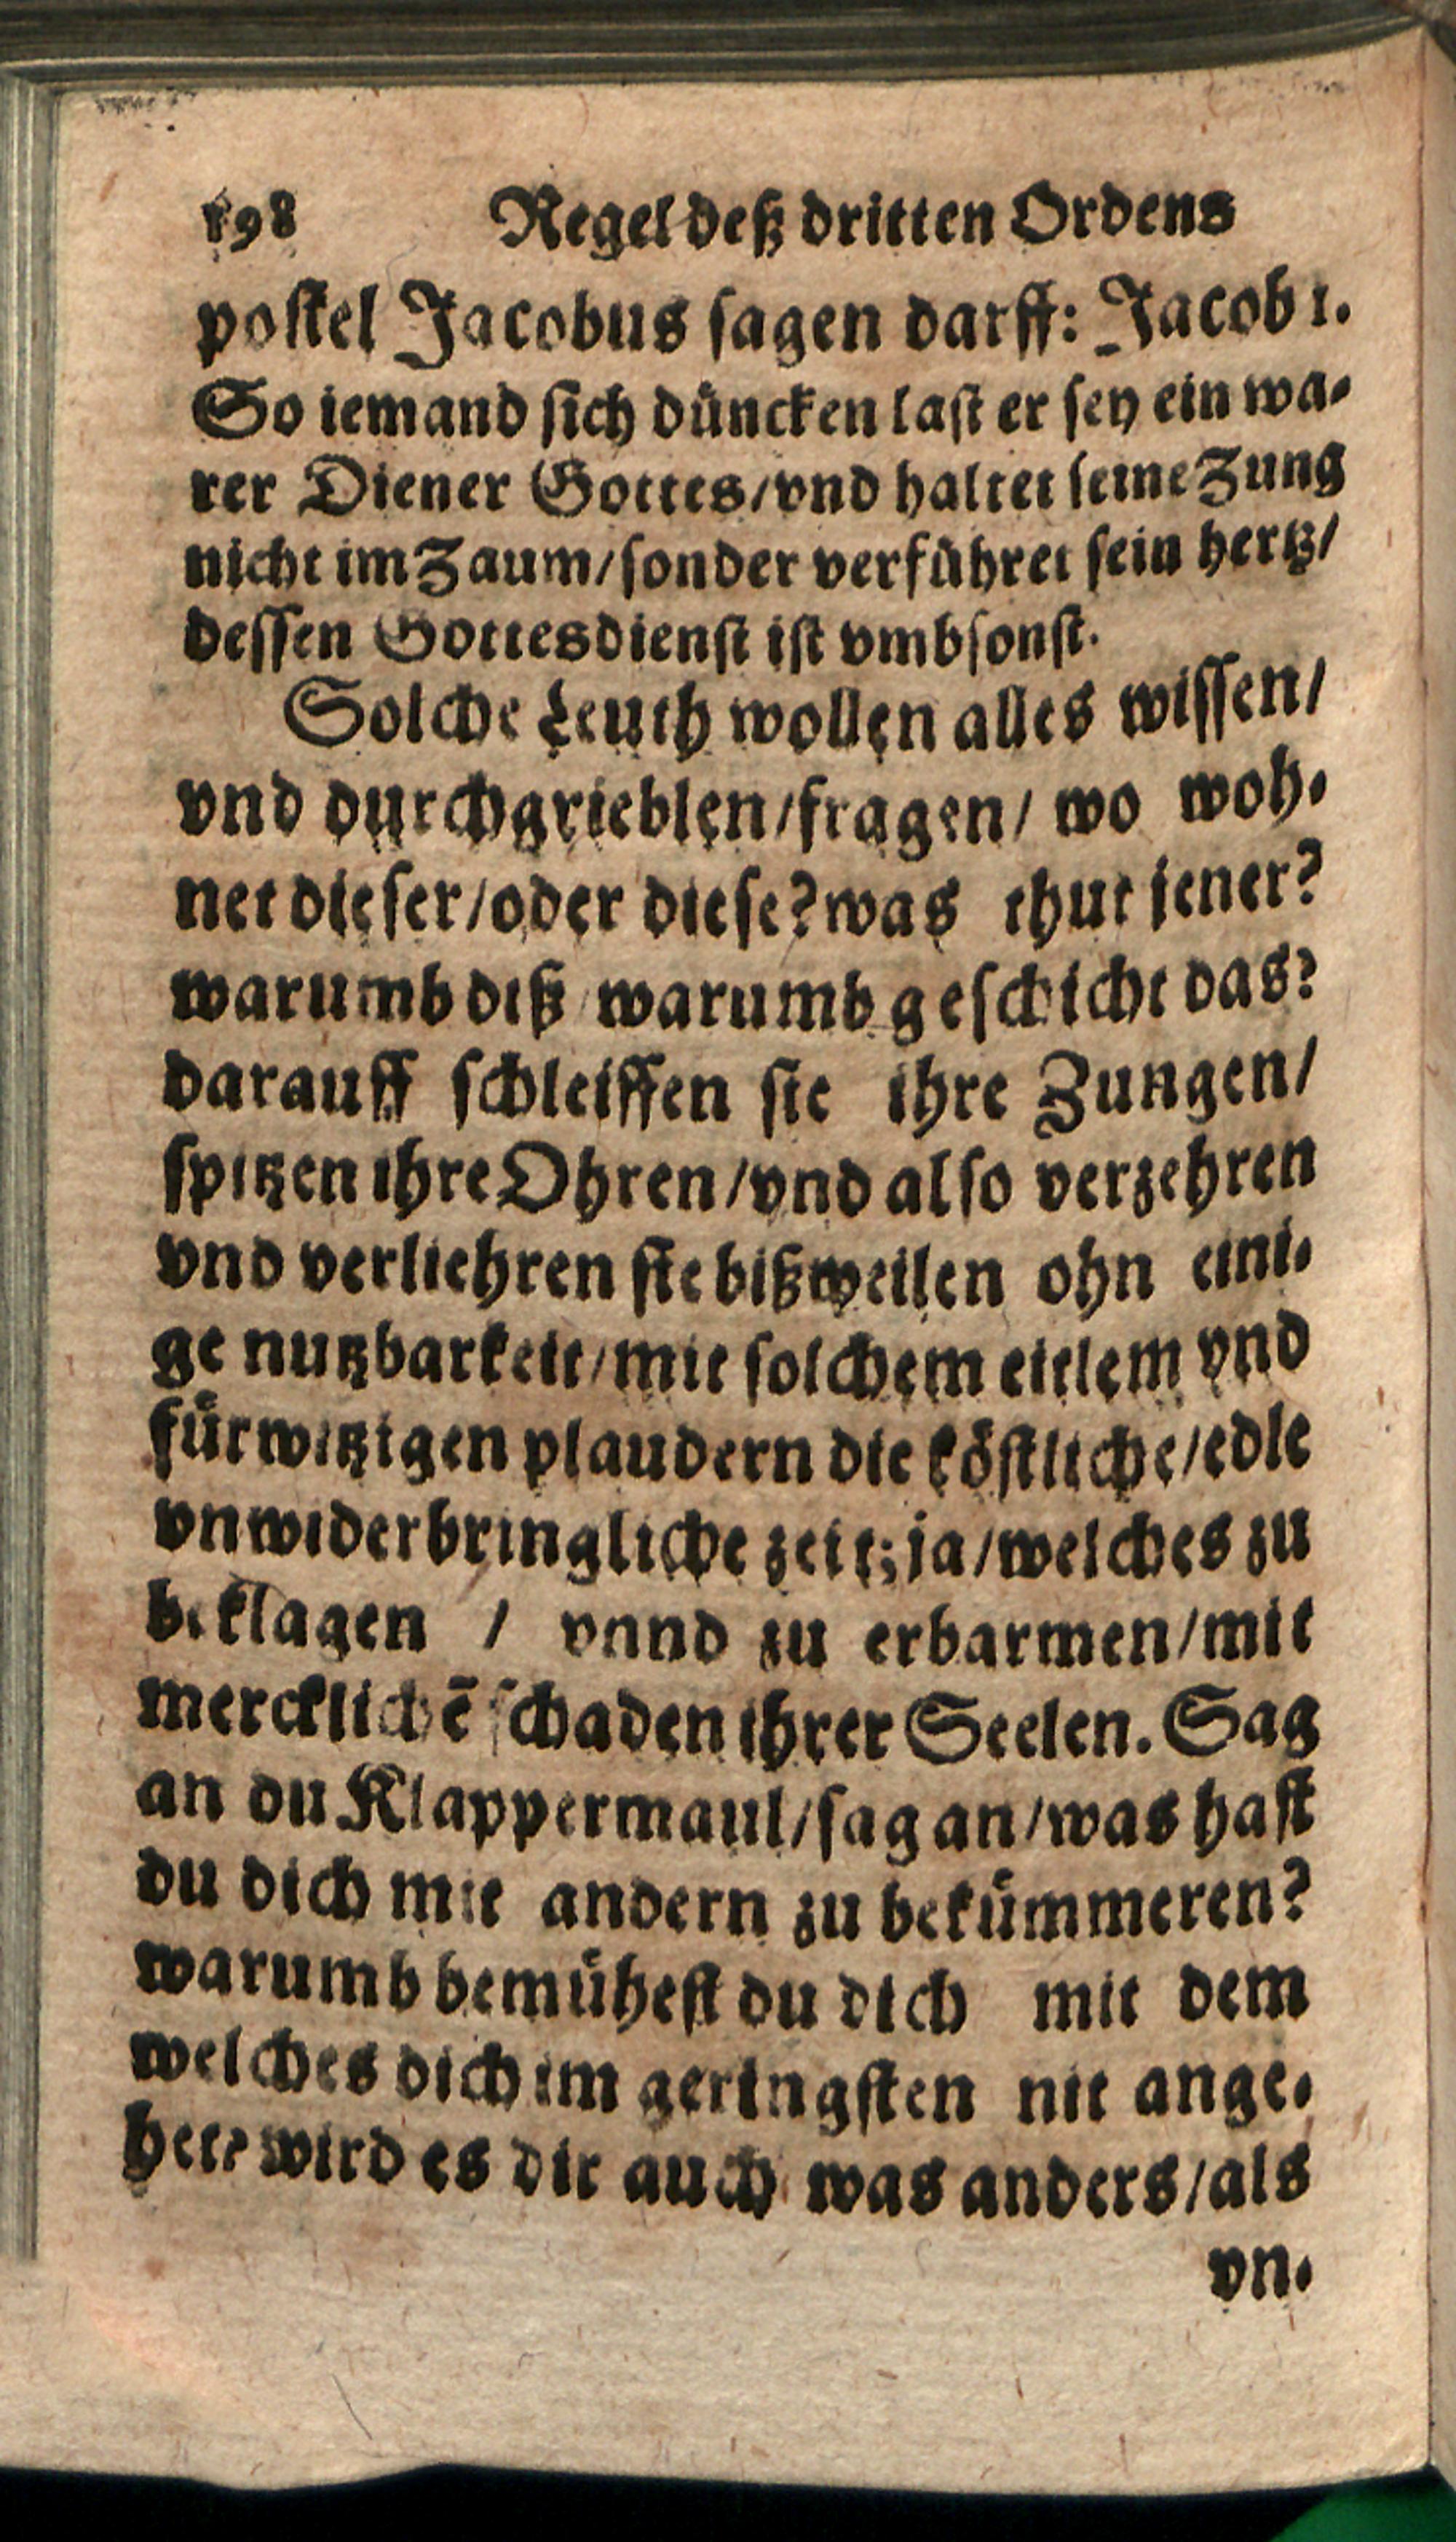 198 Regel deß dritten Ordens
postel Jacobus sagen darff: Jacob 1.
So iemand sich düncken last er sey ein wa-
rer Diener Gottes/vnd haltet seine Zung
nicht im Zaum/sonder verführet sein hertz/
dessen Gottesdienst ist vmbsonst.
Solche Leuth wollen alles wissen/
vnd durchgrieblen/fragen/ wo woh-
net dieser/oder diese? was thut jener?
warumb diß/warumb geschicht das?
darauff schleiffen sie ihre Zungen/
spitzen ihre Ohren/vnd also verzehren
vnd verliehren sie bißweilen ohn eini-
ge nutzbarkeit/mit solchem eitlem vnd
fürwitzigen plaudern die köstliche/edle
vnwiderbringliche zeit; ja/welches zu
beklagen / vnnd zu erbarmen/mit
mercklichē schaden ihrer Seelen. Sag
an du Klappermaul/sag an/was hast
du dich mit andern zu bekümmeren?
warumb bemühest du dich mit dem
welches dich im geringsten nit ange-
het? wird es dir auch was anders/als
vn-